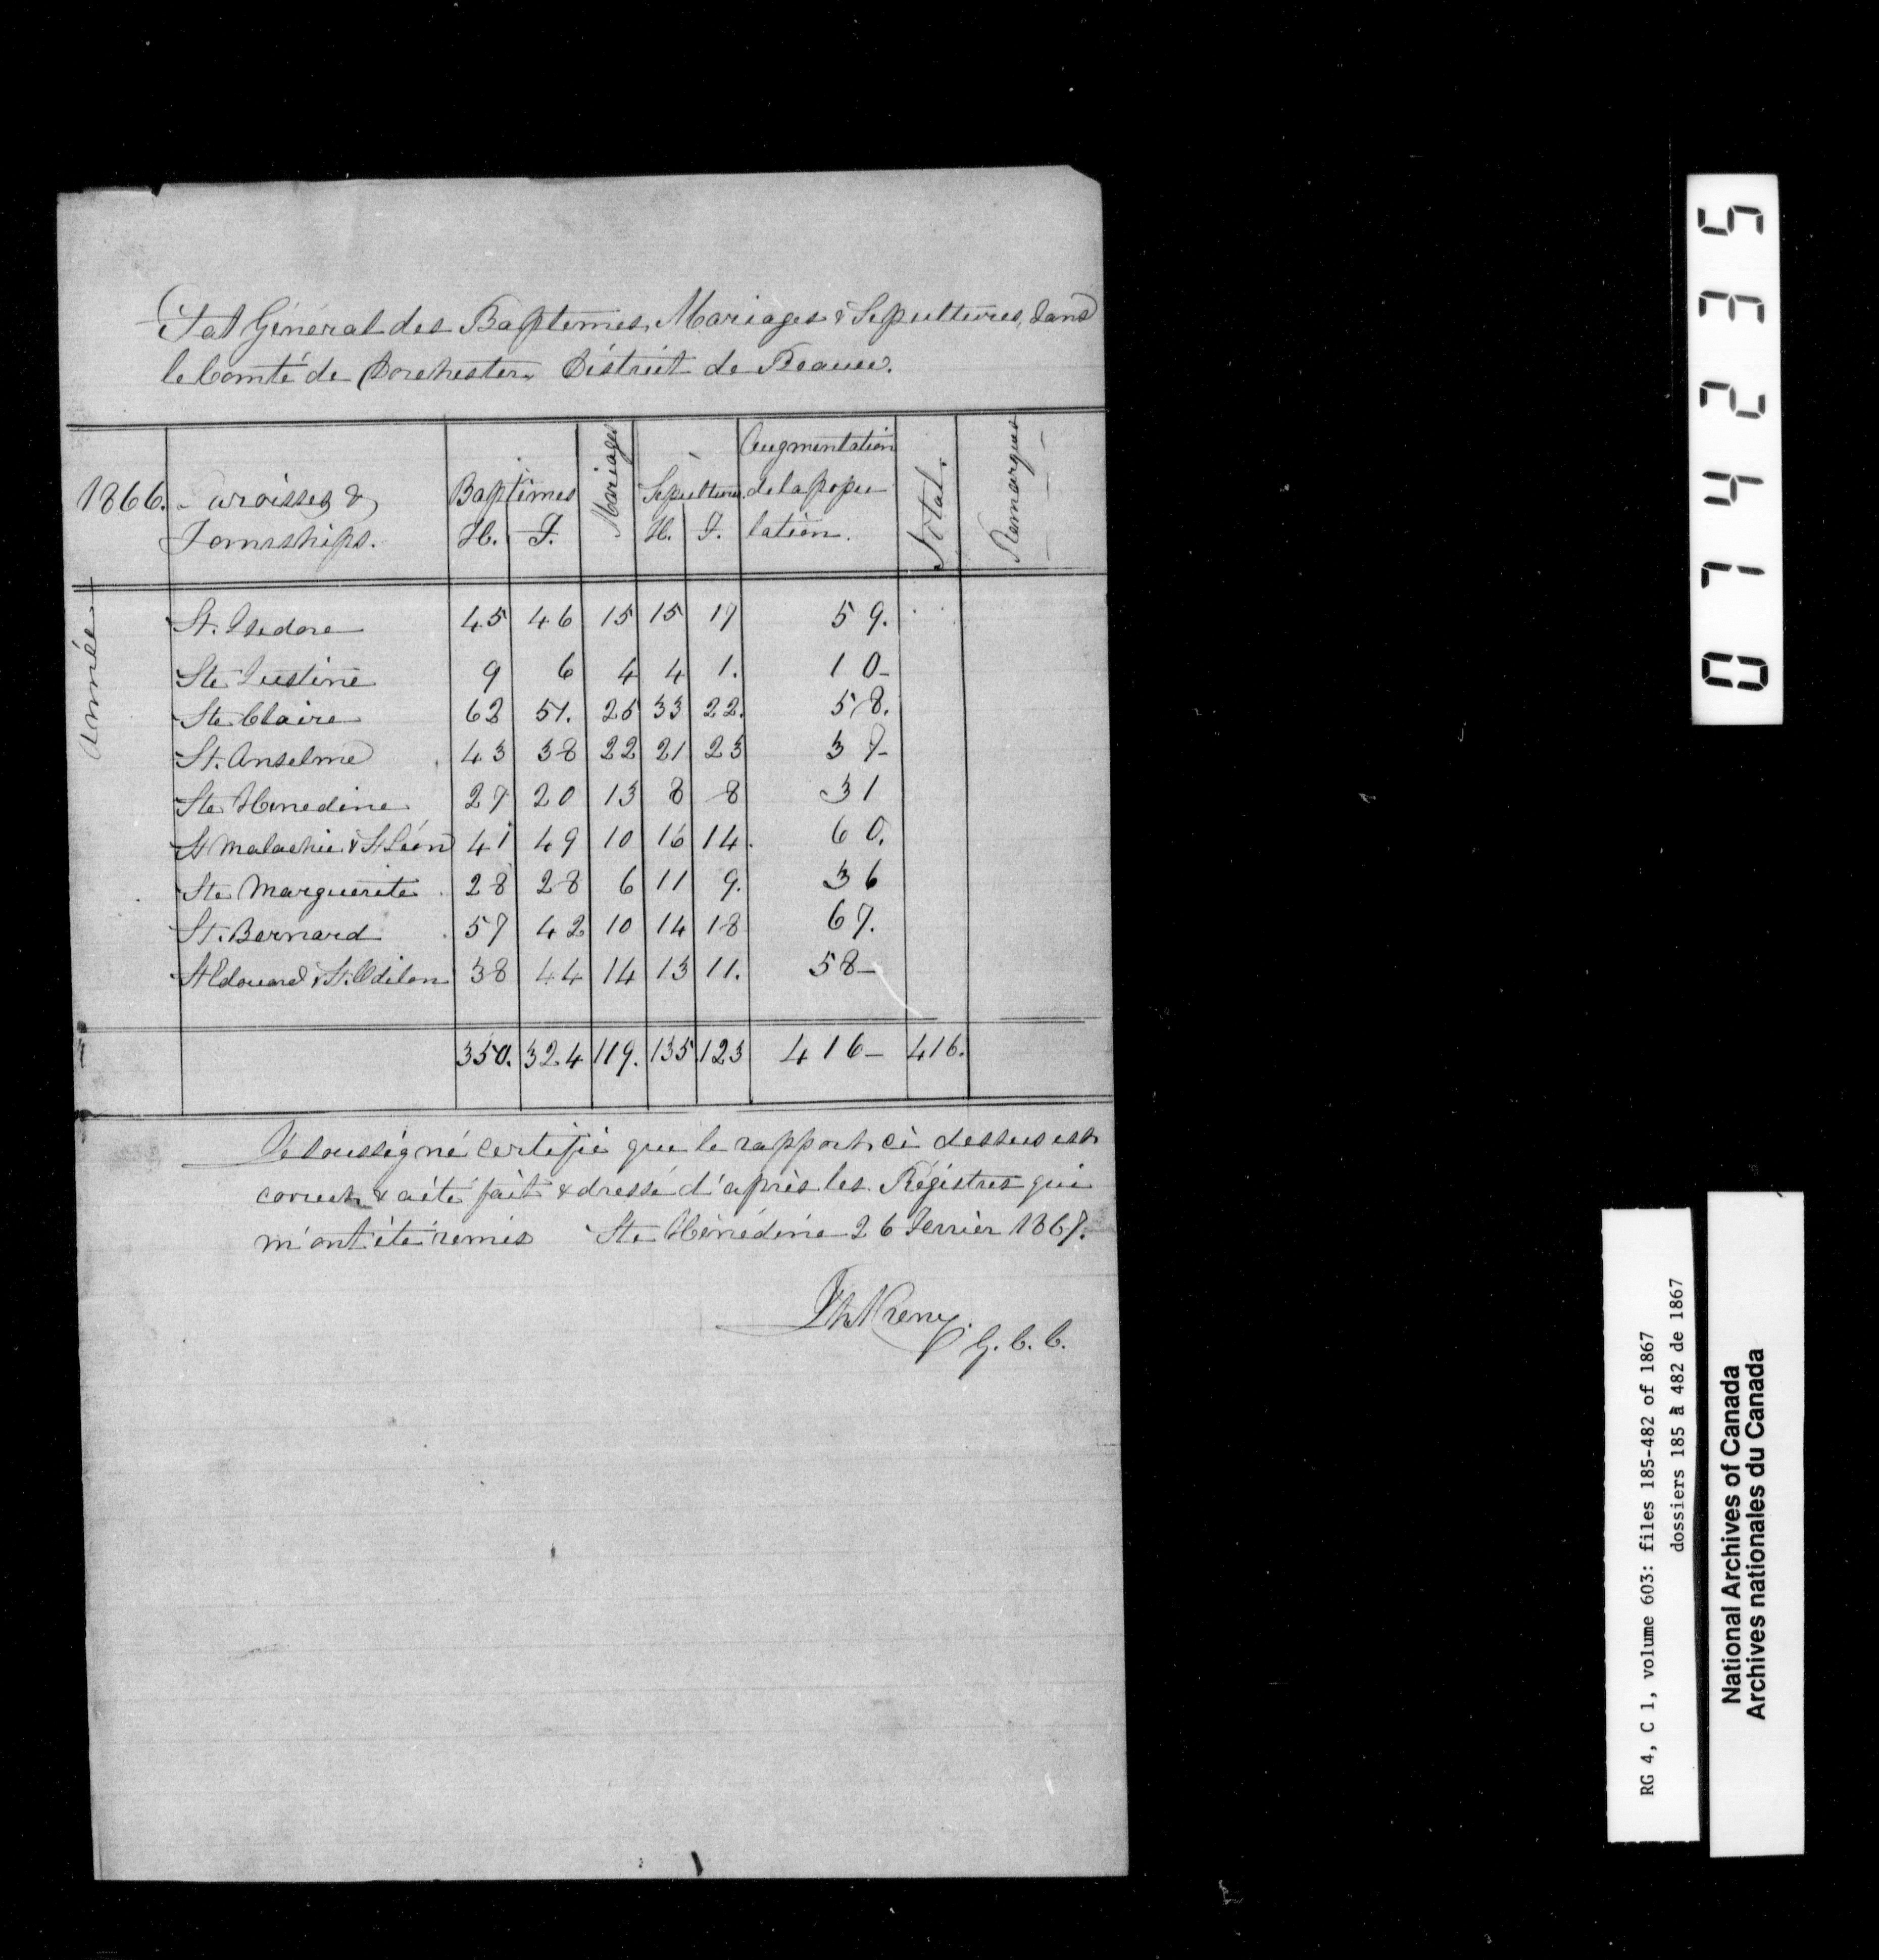 Etat Général des Baptemes, Mariages & Sepultures, dans
le Comté de Dorchester, District de Beauce.
1866. Paroisses & Townships. Baptêmes H. F. Mariages Sépultures H. F. Augmentation de la popu lation. Total. Remarques
Année
St. Isidore 45 46 15 15 17 59.
Ste Justine 9 6 4 4 1. 10-
Ste Claire 62 51. 25 33 22. 58.
St. Anselme 43 38 22 21 23 37-
Ste Henedine 27 20 13 8 8 31
St Malachie & St Léon 41 49 10 16 14. 60.
Ste Marguerite 28 28 6 11 9. 36
St. Bernard 57 42 10 14 18 67.
St Edouard & St. Odilon 38 44 14 13 11. 58-
350. 324 119. 135 123 416- 416.
Le soussigné certifie que le rapport ci dessus est
correct & a été fait & dressé d'après les Régistres qui
m'ont été remis Ste Hénédine 26 Fevrier 1867.
G. C. C.
074235
RG 4, C 1, volume 603: files 185-482 of 1867
dossiers 185 à 482 de 1867
National Archives of Canada
Archives nationales du Canada